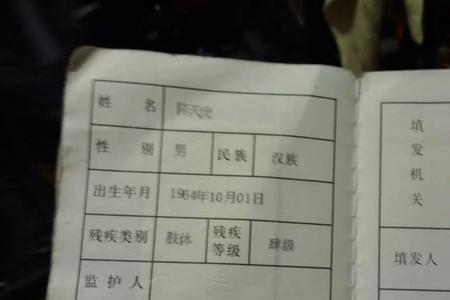 姓名 天虎
性别 男 民族 汉族
出生年月 1964年10月01日
残疾类别 肢体 残疾等级 肆级
监护人
填发机关
填发人